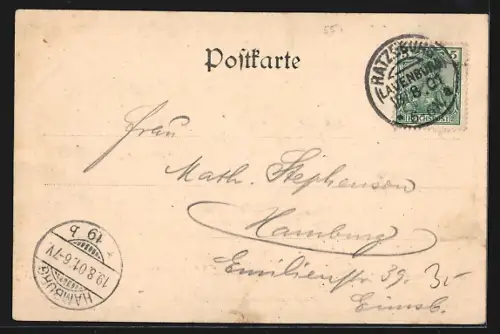 55.
Postkarte
RATZEBURG
(LAUENBURG)
5
REICHSPOST
Frau
Math. Stephenson
Hamburg
Emilienstr. 39. 3.
Eimsb.
HAMBURG
19.8.01.6-7V
* 19 b